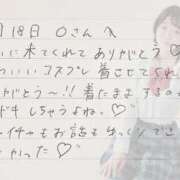 月18日 Oさんへ
いに来てくれてありがとう♡
わいいコスプレ 着させてくれ
がとう〜!! 着たままするの
ドキしちゃうよね。♡
チャもお話もゆっくりでき
しかった♡